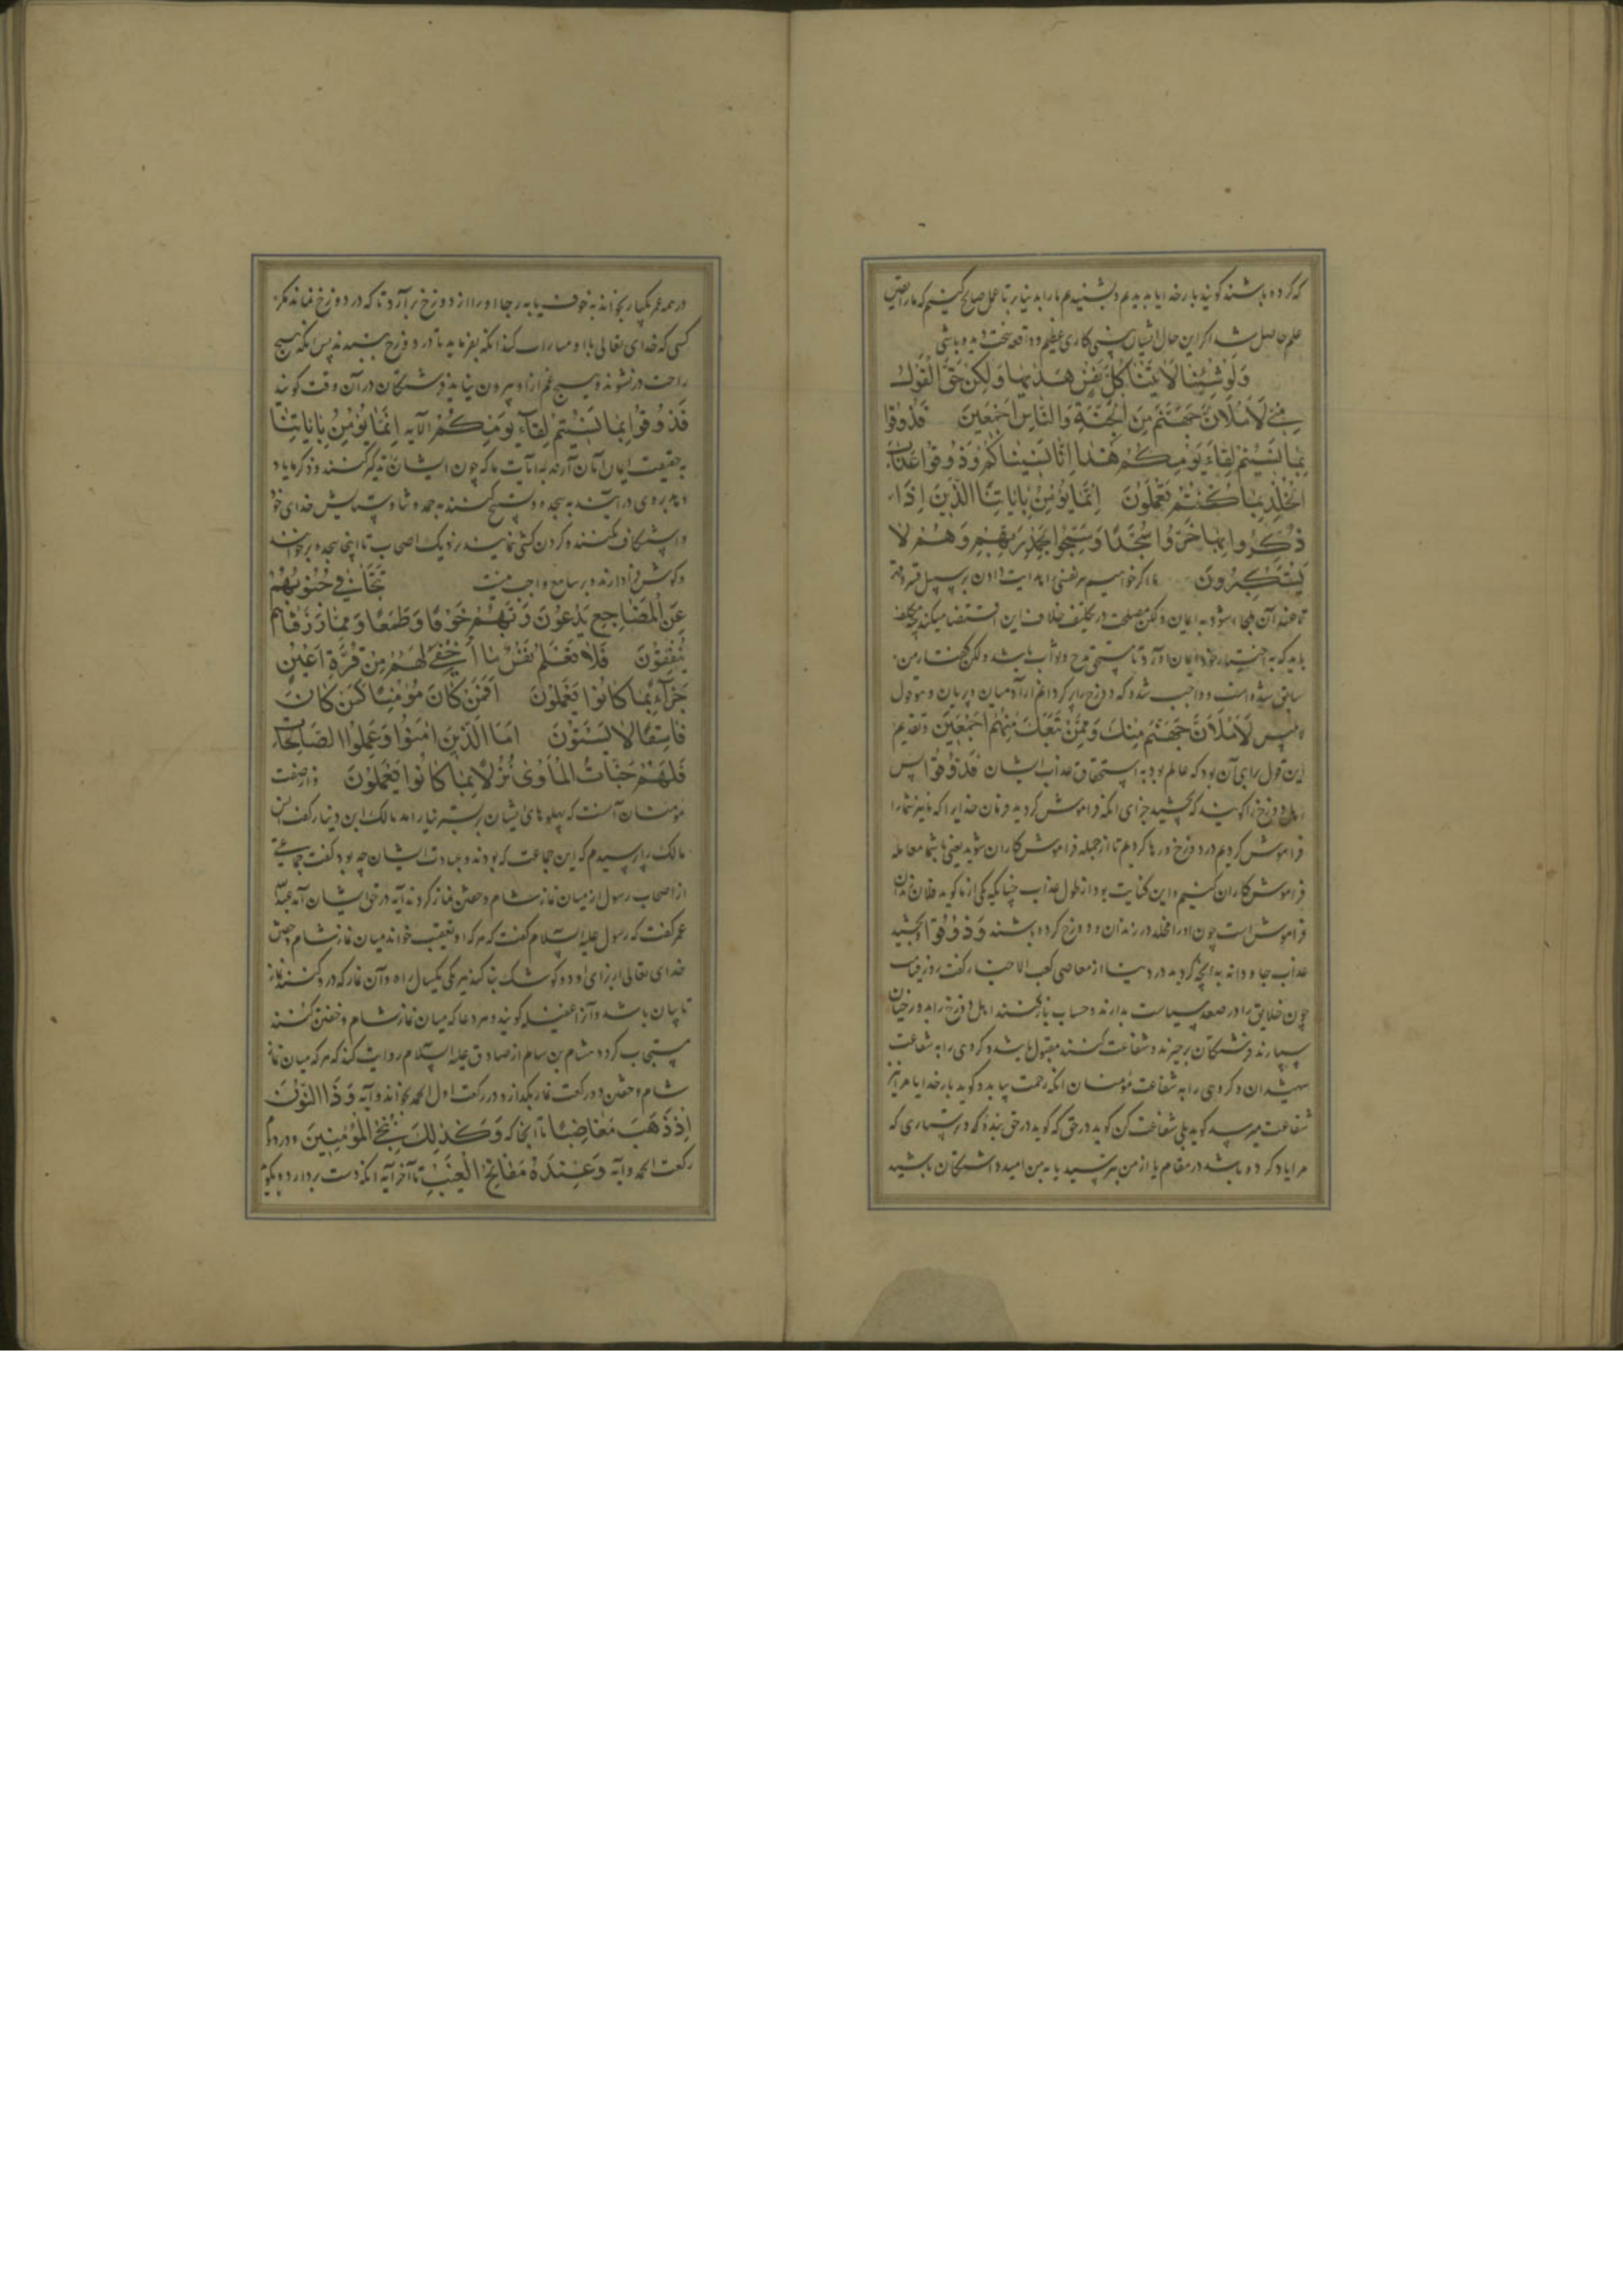 که کرده باشند کویند بار خدایا بدیدیم و بشنیدیم ما را بدنیا بر تا عمل صالح کنیم که ما را یقین
علم حاصل شد اکر این حال ایشان بینی کاری عظیم و واقعه سخت دیده باشی
وَلَوْ شِئْنَا لَآتَيْنَا كُلَّ نَفْسٍ هُدٰيهَا وَلٰكِنْ حَقَّ الْقَوْلُ
مِنّي لَأَمْلَأَنَّ جَهَنَّمَ مِنَ الْجِنَّةِ وَالنَّاسِ اَجْمَعِينَ فَذُوقُوا
بِمَا نَسِيتُمْ لِقَاءَ يَوْمِكُمْ هٰذَا اِنَّا نَسِينَاكُمْ وَذُوقُوا عَذَابَ
الْخُلْدِ بِمَا كُنْتُمْ تَعْمَلُونَ اِنَّمَا يُؤْمِنُ بِاٰيَاتِنَا الَّذِينَ اِذَا
ذُكِّرُوا بِهَا خَرُّوا سُجَّدًا وَسَبَّحُوا بِحَمْدِ رَبِّهِمْ وَهُمْ لَا
يَسْتَكْبِرُونَ ما اکر خواهیم هر نفسی را هدایت دادن بر سبیل قسر
تا عند آن ملجا شود به ایمان ولکن مصلحت در تکلیف خلاف این اقتضا میکند چه مکلف
باید که به اختیار خود ایمان آورد تا مستحق مدح و ثواب باشد ولکن کفتار من
سابق شده است و واجب شده که دوزخ را پر کردانم از آدمیان و پریان و هو قول
ابلیس لَأَمْلَأَنَّ جَهَنَّمَ مِنْكَ وَمِمَّنْ تَبِعَكَ مِنْهُمْ اَجْمَعِينَ و تقدیم
این قول برای آن بود که عالم بود به استحقاق عذاب ایشان فَذُوقُوا پس
اهل دوزخ را کویند که بچشید جزای انکه فراموش کردید فرمان خدایرا که ما نیز شما را
فراموش کردیم در دوزخ و رها کردیم تا از جمله فراموش کاران شوید یعنی با شما معامله
فراموش کاران کنیم و این کنایت بود از طول عذاب چنانکه یکی از ما کوید فلان زندان
فراموش است چون او را مخلد در زندان و دوزخ کرده باشند وَذُوقُوا و بچشید
عذاب جاودانه به انچه کردید در دنیا از معاصی کعب الاحبار کفت روز قیامت
چون خلایق را در صعید سیاست بدارند و حساب باز کنند اهل دوزخ را به دوزخیان
سپارند فرشتکان برخیزند و شفاعت کنند مقبول باشد و کروهی را به شفاعت
شهیدان و کروهی را به شفاعت مؤمنان انکه رحمت بیاید و کوید بار خدایا مرا نیز
شفاعت میرسد کوید بلی شفاعت کن کوید در حق که کوید در حق بنده که در شبهاری که
مرا یاد کرده باشد در مقام یا از من بترسید یا به من امید داشتکان باشید
در همه عمر یکبار بخواند به خوف یا به رجا او را از دوزخ بر آرد تا که در دوزخ نماند مکر
کسی که خدای تعالی با او مبارات کند انکه بفرماید تا در دوزخ ببندند پس انکه هیچ
راحت در نشوند و هیچ غم از او بیرون نیاید فرشتکان در آن وقت کویند
فَذُوقُوا بِمَا نَسِيتُمْ لِقَآءَ يَوْمِكُمْ الآیه اِنَّمَا يُؤْمِنُ بِاٰيَاتِنَا
به حقیقت ایمان آنان آرند به آیات ما که چون ایشان تذکیر کنند و ذکر ما یاد
دهد بروی در آیند به سجده و تسبیح کنند به حمد و ثنا و ستایش خدای خود
و استنکاف نکنند و کردن کشی ننمایند نزدیک اصحاب ما اینجا سجده بر خواننده
و کوش فرا دارنده و بر سامع واجب نیست تَتَجَافٰى جُنُوبُهُمْ
عَنِ الْمَضَاجِعِ يَدْعُونَ رَبَّهُمْ خَوْفًا وَطَمَعًا وَمِمَّا رَزَقْنَاهُمْ
يُنْفِقُونَ فَلَا تَعْلَمُ نَفْسٌ مَا اُخْفِيَ لَهُمْ مِنْ قُرَّةِ اَعْيُنٍ
جَزَآءً بِمَا كَانُوا يَعْمَلُونَ اَفَمَنْ كَانَ مُؤْمِنًا كَمَنْ كَانَ
فَاسِقًا لَا يَسْتَوُونَ اَمَّا الَّذِينَ اٰمَنُوا وَعَمِلُوا الصَّالِحَاتِ
فَلَهُمْ جَنَّاتُ الْمَأْوٰى نُزُلًا بِمَا كَانُوا يَعْمَلُونَ و از صفت
مؤمنان آنست که پهلوهای ایشان بر بستر نیارامد مالک ابن دینار کفت انس
مالک را پرسیدم که این جماعت که بودند و عبادت ایشان چه بود کفت جماعتی
از اصحاب رسول از میان نماز شام و خفتن نماز کردند آیه در حق ایشان آمد عبدالله
عمر کفت که رسول علیه السلام کفت که هر که او تعقیب خواند میان نماز شام و خفتن
خدای تعالی از برای او دو کوشک بنا کند هر یکی یکسال راه و آن نماز که در کنند نماز
تایبان باشد و آنرا غفیله کویند و هر دعا که میان نماز شام و خفتن کنند
مستجاب کردد هشام بن سالم از صادق علیه السلام روایت کند که هر که میان نماز
شام و خفتن دو رکعت نماز بگذارد و در رکعت اول الحمد بخواند و آیه وَذَا النُّونِ
اِذْ ذَهَبَ مُغَاضِبًا تا انجا که وَكَذٰلِكَ نُنْجِي الْمُؤْمِنِينَ و در دوم
رکعت الحمد و آیه وَعِنْدَهُ مَفَاتِحُ الْغَيْبِ تا آخر آیه انکه دست بردارد و بکوید